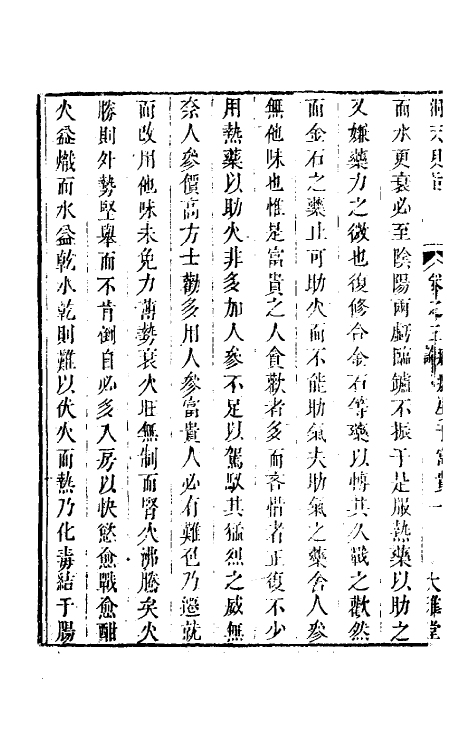 洞天奧旨 卷之五 大雅堂
而水更衰必至陰陽兩虧臨鑪不振于是服熱藥以助之
又嫌藥力之微也復修合金石等藥以博其久戰之歡然
而金石之藥止可助火而不能助氣夫助氣之藥舍人參
無他味也惟是富貴之人貪歡者多而吝惜者正復不少
用熱藥以助火非多加人參不足以駕馭其猛烈之威無
奈人參價高方士勸多用人參富貴人必有難色乃遷就
而改用他味未免力薄勢衰火旺無制而腎火沸騰矣火
勝則外勢堅舉而不肯倒自必多入房以快慾愈戰愈酣
火益熾而水益乾水乾則難以伏火而熱乃化毒結于腸